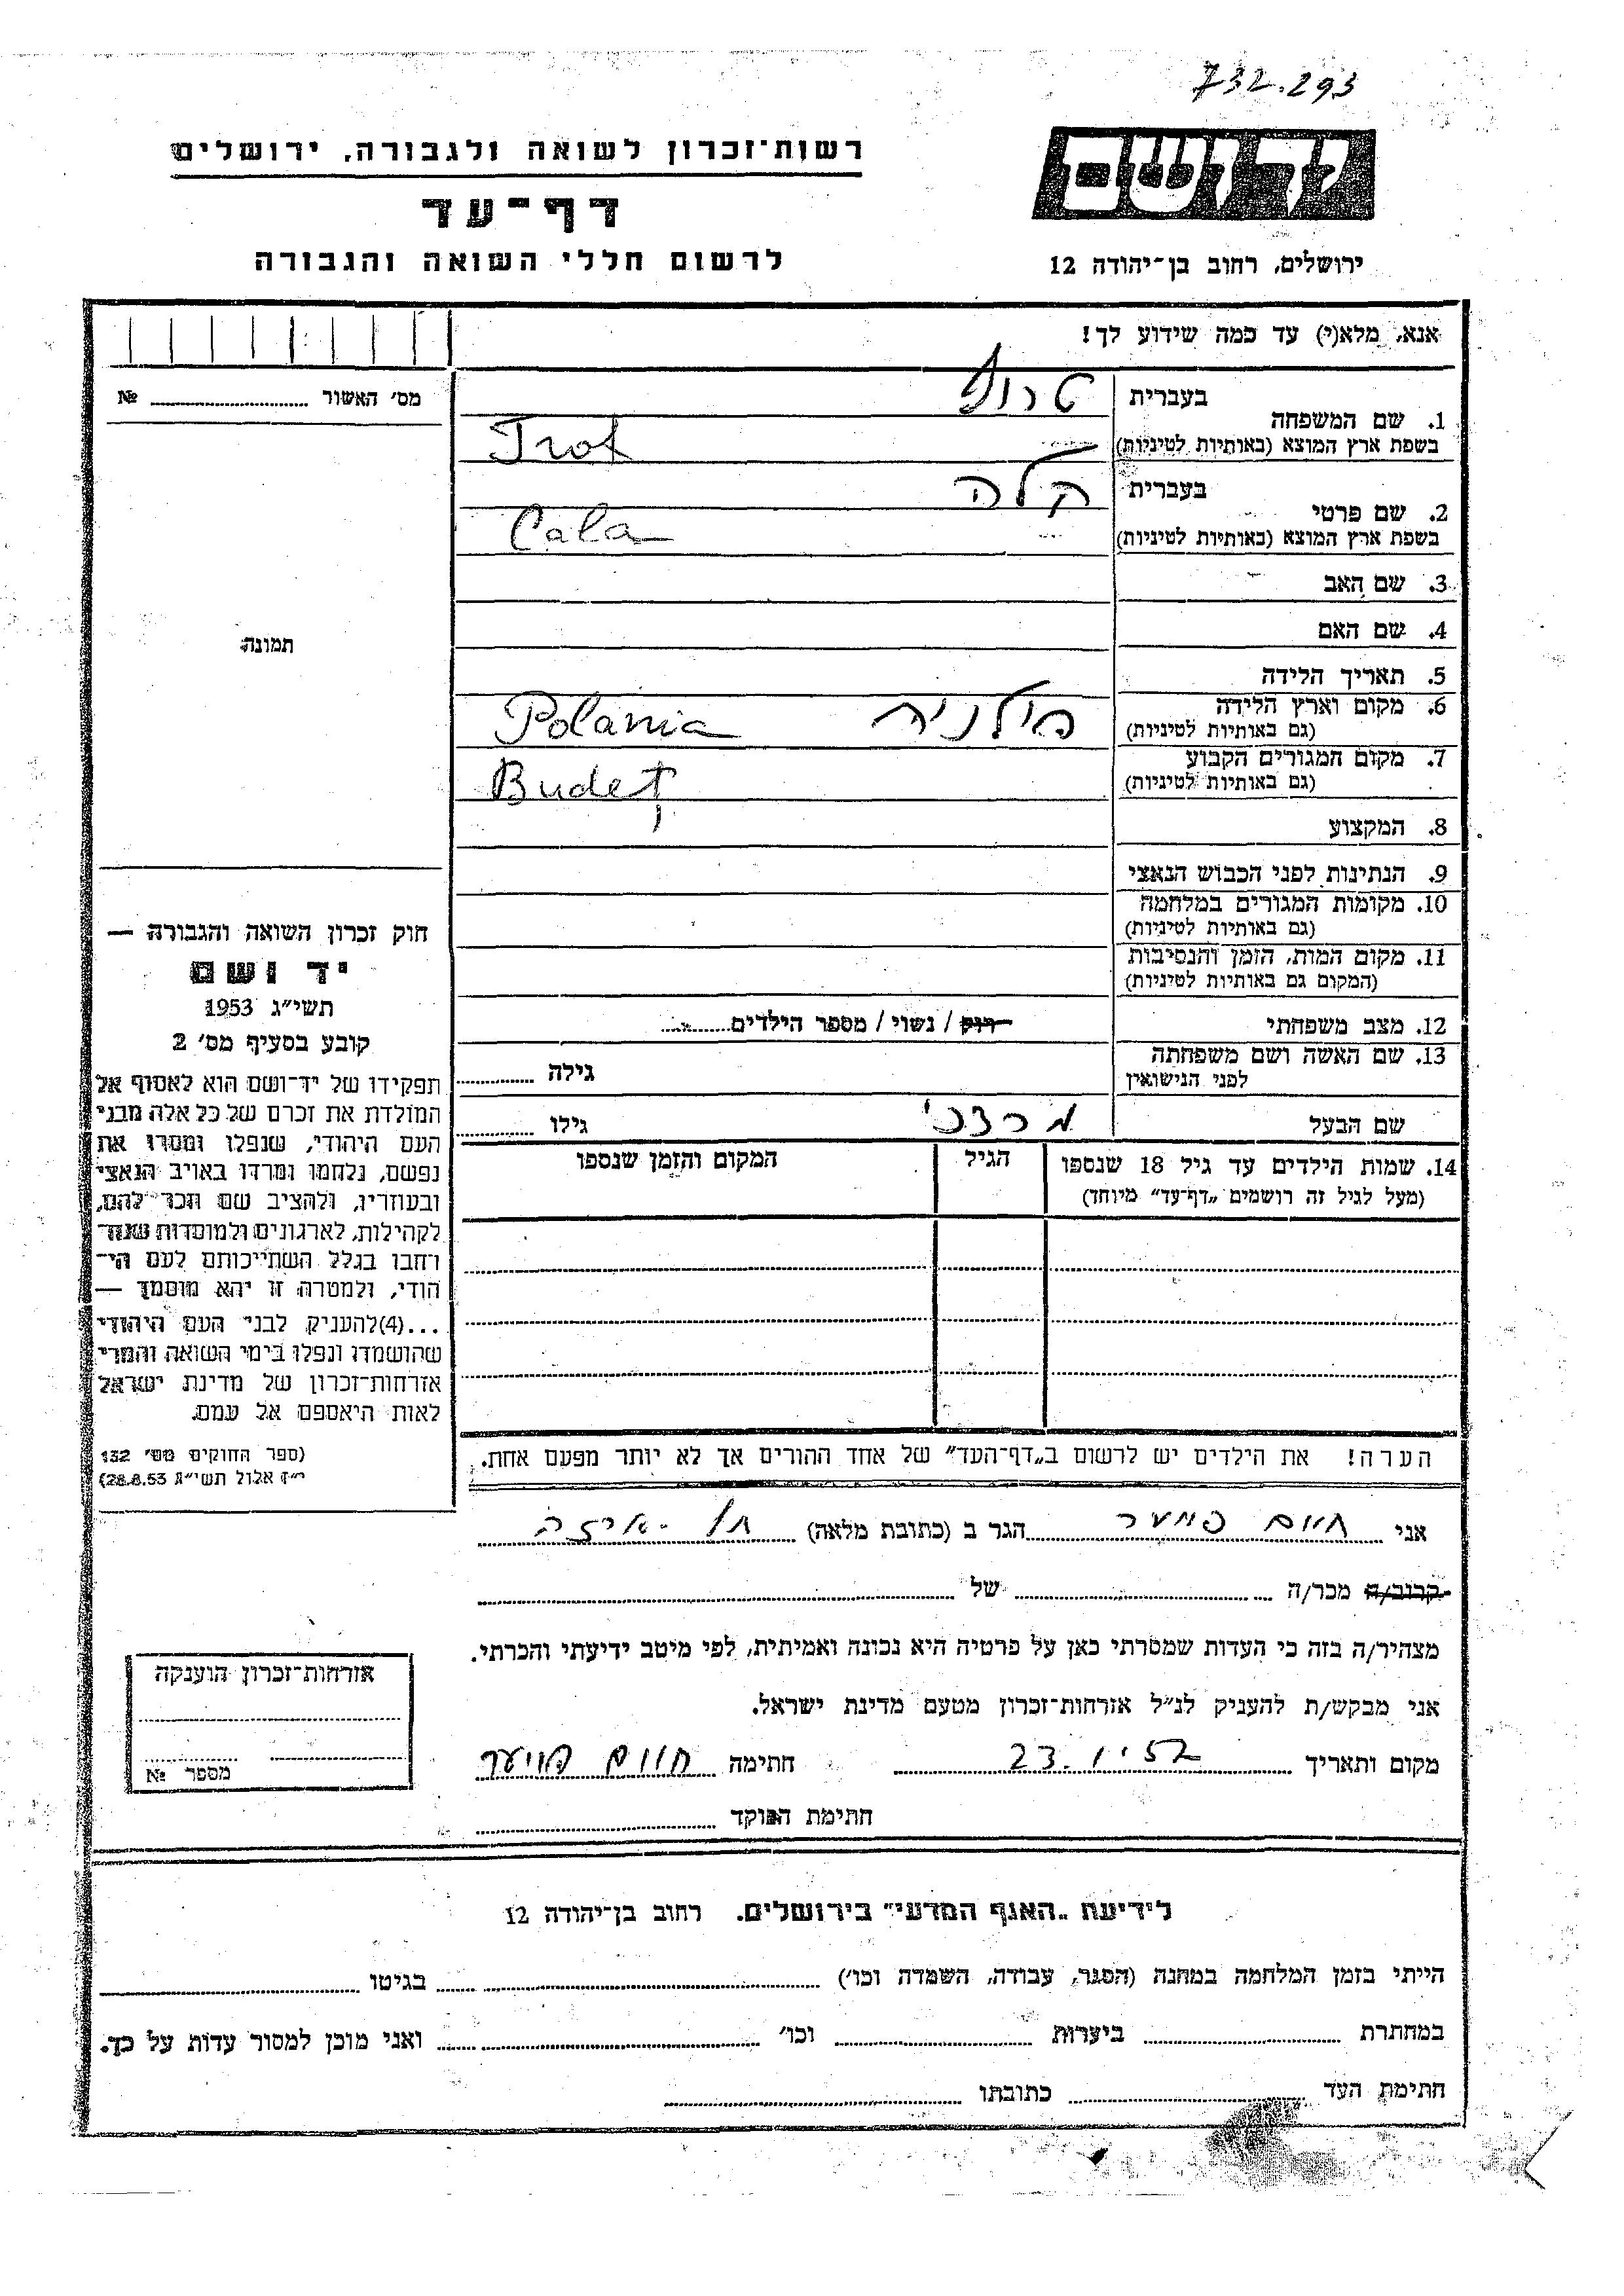 732.293
רשות־זכרון לשואה ולגבורה, ירושלים
דף־עד
לרשום חללי השואה והגבורה
יד ושם
ירושלים, רחוב בן־יהודה 12
אנא, מלא(י) עד כמה שידוע לך!
מס׳ האשור № 
1. שם המשפחה בעברית טרוף
בשפת ארץ המוצא (באותיות לטיניות) Trof
2. שם פרטי בעברית קלה
בשפת ארץ המוצא (באותיות לטיניות) Cala
3. שם האב
4. שם האם
5. תאריך הלידה
6. מקום וארץ הלידה פולניה Polania
(גם באותיות לטיניות)
7. מקום המגורים הקבוע Budeț
(גם באותיות לטיניות)
8. המקצוע
9. הנתינות לפני הכבוש הנאצי
10. מקומות המגורים במלחמה
(גם באותיות לטיניות)
11. מקום המות, הזמן והנסיבות
(המקום גם באותיות לטיניות)
12. מצב משפחתי רווק / נשוי / מספר הילדים
13. שם האשה ושם משפחתה
לפני הנישואין גילה
שם הבעל מרדכי גילו
14. שמות הילדים עד גיל 18 שנספו הגיל המקום והזמן שנספו
(מעל לגיל זה רושמים „דף־עד” מיוחד)
הערה! את הילדים יש לרשום ב„דף־העד” של אחד ההורים אך לא יותר מפעם אחת.
תמונה
חוק זכרון השואה והגבורה —
יד ושם
תשי״ג 1953
קובע בסעיף מס׳ 2
תפקידו של יד־ושם הוא לאסוף אל
המולדת את זכרם של כל אלה מבני
העם היהודי, שנפלו ומסרו את
נפשם, נלחמו ומרדו באויב הנאצי
ובעוזריו, ולהציב שם וזכר להם,
לקהילות, לארגונים ולמוסדות שנח־
רחבו בגלל השתייכותם לעם הי־
הודי, ולמטרה זו יהא מוסמך —
...(4)להעניק לבני העם היהודי
שהושמדו ונפלו בימי השואה והמרי
אזרחות־זכרון של מדינת ישראל
לאות היאספם אל עמם.
(ספר החוקים מס׳ 132
י״ז אלול תשי״ג 28.8.53)
אני חיים הגר ב (כתובת מלאה)
קרוב/ה מכר/ה של
מצהיר/ה בזה כי העדות שמסרתי כאן על פרטיה היא נכונה ואמיתית, לפי מיטב ידיעתי והכרתי.
אני מבקש/ת להעניק לנ״ל אזרחות־זכרון מטעם מדינת ישראל.
מקום ותאריך חתימה חיים
חתימת הפוקד
אזרחות־זכרון הוענקה
מספר №
לידיעת „האגף המדעי” בירושלים. רחוב בן־יהודה 12
הייתי בזמן המלחמה במחנה (הסגר, עבודה, השמדה וכו׳) בגיטו
במחתרת ביערות וכו׳ ואני מוכן למסור עדות על כך.
חתימת העד כתובתו